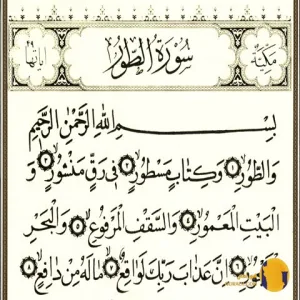 مكية سورة الطور آياتها ٤٩
بِسْمِ اللهِ الرَّحْمٰنِ الرَّحِيْمِ
وَالطُّوْرِ ۝١ وَكِتَابٍ مَسْطُوْرٍ ۝٢ فِي رَقٍّ مَنْشُوْرٍ ۝٣ وَ
الْبَيْتِ الْمَعْمُوْرِ ۝٤ وَالسَّقْفِ الْمَرْفُوْعِ ۝٥ وَالْبَحْرِ
إِنَّ عَذَابَ رَبِّكَ لَوَاقِعٌ ۝٧ مَا لَهُ مِنْ دَافِعٍ ۝٨